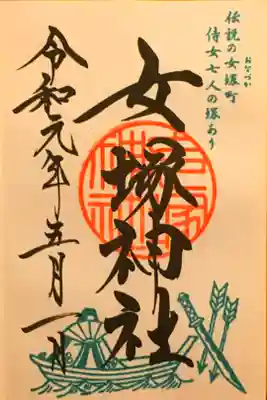 伝説の女塚町
おなづか
侍女七人の塚あり
女塚神社
令和元年五月一日